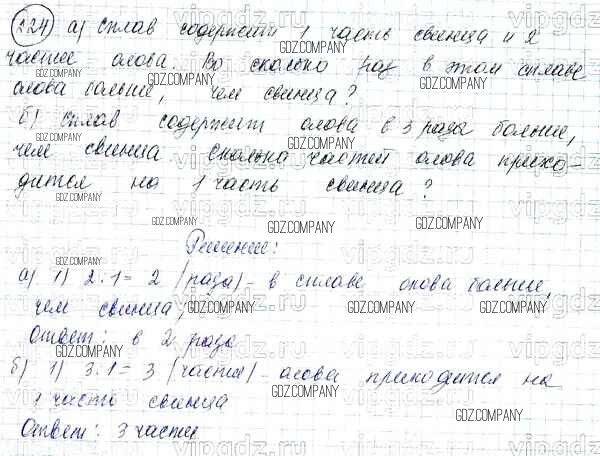 224) а) Сплав содержит 1 часть свинца и 2
части олова. Во сколько раз в этом сплаве
олова больше, чем свинца?
б) Сплав содержит олова в 3 раза больше,
чем свинца Сколько частей олова прихо-
дится на 1 часть свинца?
Решение:
а) 1) 2:1= 2 (раза) - в сплаве олова больше,
чем свинца
Ответ: в 2 раза
б) 1) 3·1= 3 (части) - олова приходится на
1 часть свинца
Ответ: 3 части